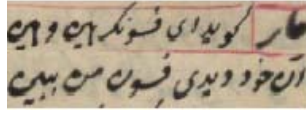 گوید ای فسونگر هین و هین
آن خود دیدی فسون من ببین